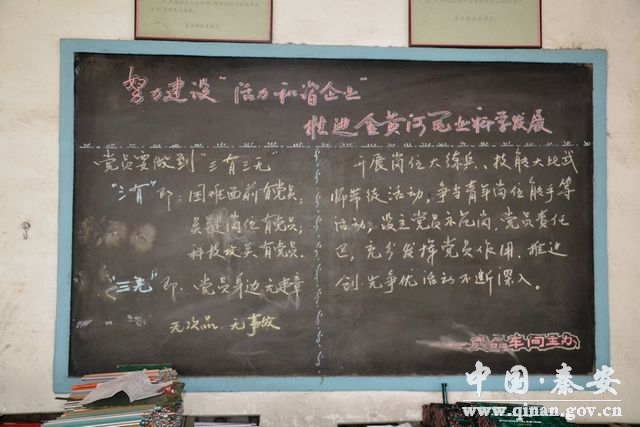 努力建设"活力和谐企业"
推进金黄河瓦业科学发展
党员要做到"三有三无"
"三有"即:困难面前有党员,
关键岗位有党员,
科技攻关有党员.
"三无"即:党员身边无违章
无次品.无事故
开展岗位大练兵、技能大比武
师带徒活动,争当青年岗位能手等
活动,设立党员示范岗,党员责任
区,充分发挥党员作用,推进
创先争优活动不断深入。
成品车间主办
中国·秦安
www.qinan.gov.cn